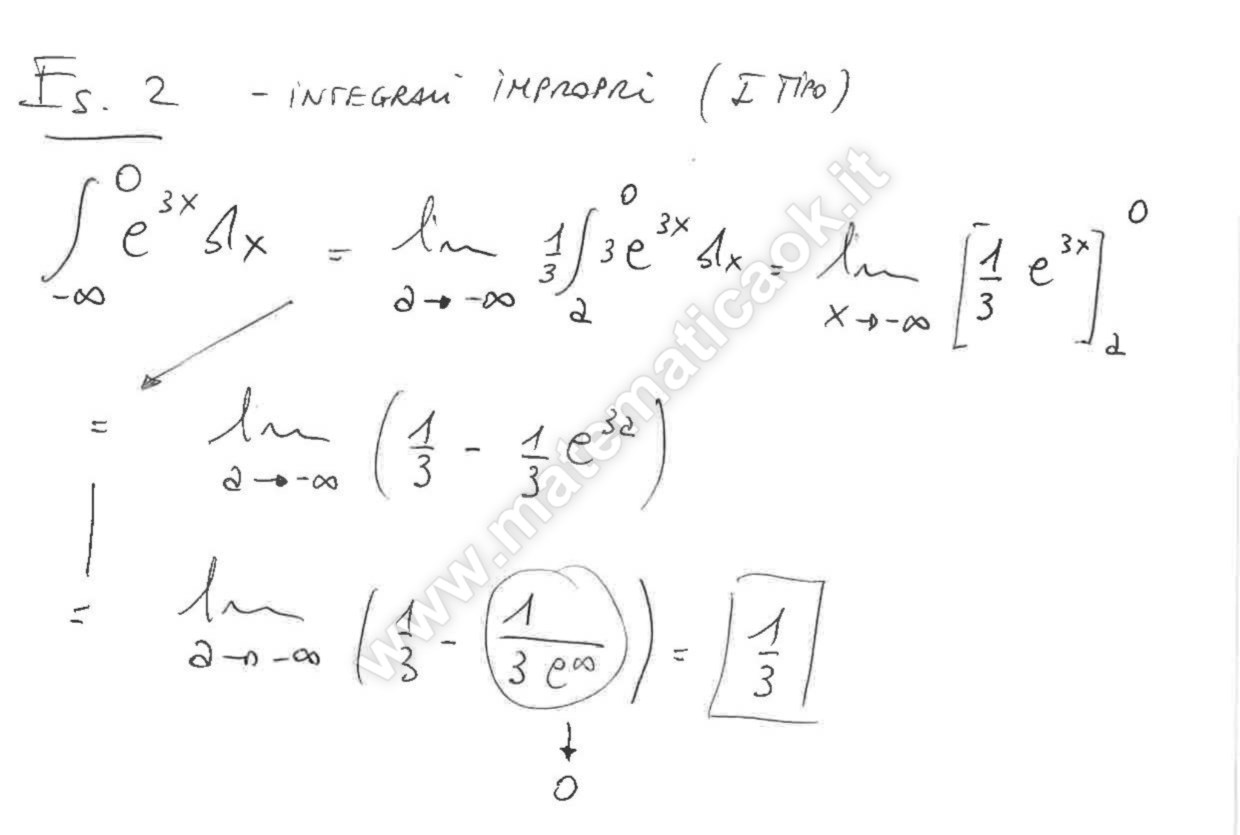 Es. 2 - INTEGRALI IMPROPRI (I TIPO)
∫_{-∞}^{0} e^{3x} dx = lim_{a→-∞} 1/3 ∫_{a}^{0} 3e^{3x} dx = lim_{x→-∞} [1/3 e^{3x}]_{a}^{0}
= lim_{a→-∞} (1/3 - 1/3 e^{3a})
= lim_{a→-∞} (1/3 - 1/(3 e^{∞})) = 1/3
↓
0
www.matematicaok.it